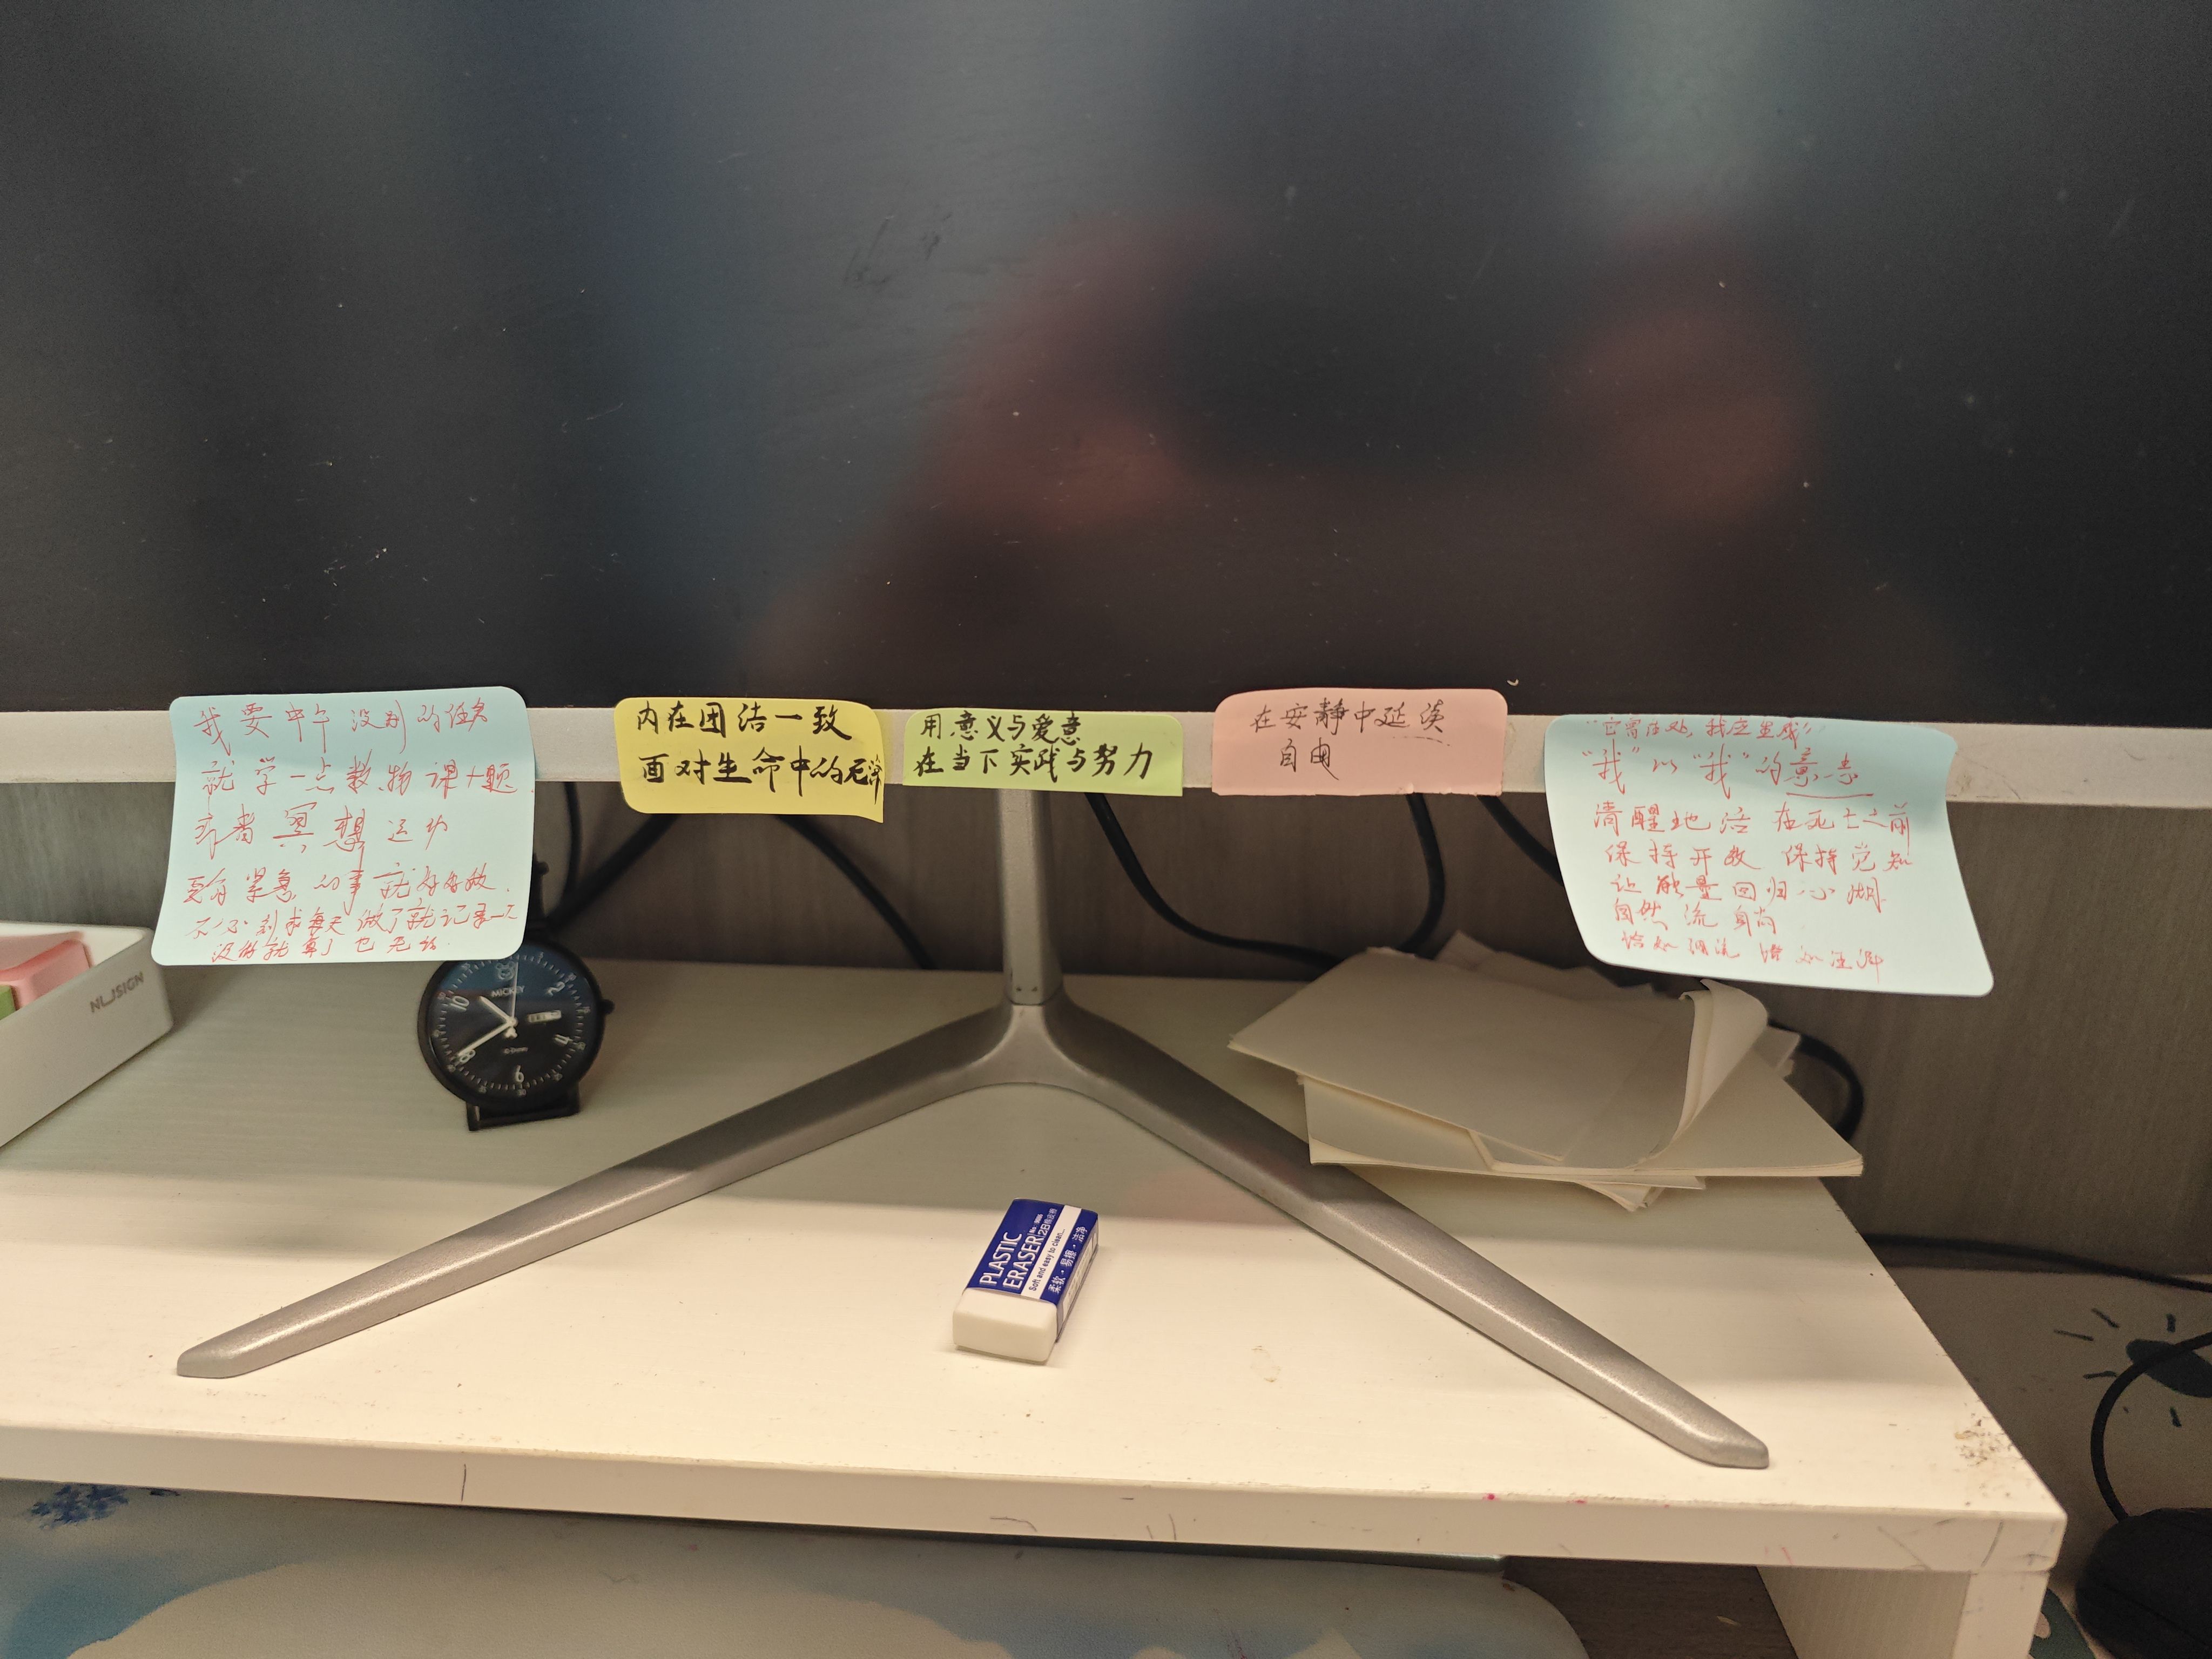 我要中午没别的任务
就学一点数.物课+题.
或者冥想运动
更有紧急的事就好好做.
不必刻求每天做了就记录一下
没做就算了也无妨.
内在团结一致
面对生命中的无常
用意义与爱意
在当下实践与努力
在安静中延续
自由
"我"以"我"的意志
清醒地活在死亡之前
保持开放 保持觉知
让能量回归心湖
自然流向
恰如溪流 恰如汪洋
NUSIGN
MICKEY
10
2
4
6
8
PLASTIC
ERASER
2B
Soft and easy to clean...
柔软·易擦·洁净